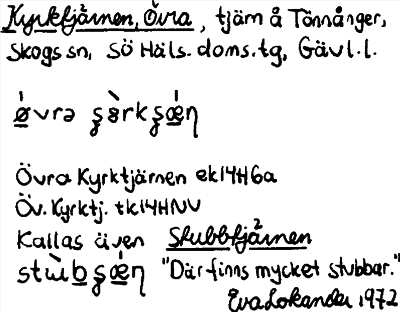 Kyrktjärnen, Övra, tjärn å Tönnånger,
Skogs sn, Sö Häls. doms. tg, Gävl. l.
øvrə ʂɵrkʂæɳ
Övra Kyrktjärnen ek14H6a
Öv. Kyrktj. tk14HNV
Kallas även Stubbtjärnen
stɯbʂæɳ "Där finns mycket stubbar."
Eva Lokander 1972